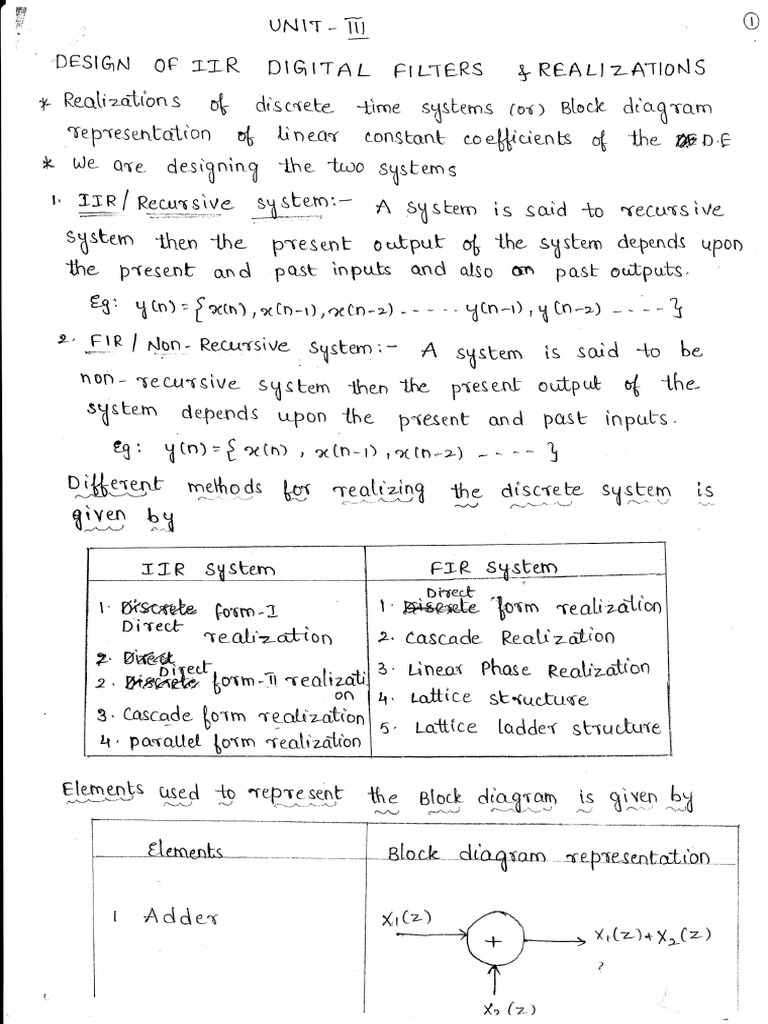 ①
UNIT - III
DESIGN OF IIR DIGITAL FILTERS & REALIZATIONS
* Realizations of discrete time systems (or) Block diagram
representation of linear constant coefficients of the D.E
* We are designing the two systems
1. IIR / Recursive system:- A system is said to recursive
system then the present output of the system depends upon
the present and past inputs and also on past outputs.
Eg: y(n) = { x(n), x(n-1), x(n-2) - - - - - y(n-1), y(n-2) - - - - }
2. FIR / Non-Recursive system:- A system is said to be
non-recursive system then the present output of the
system depends upon the present and past inputs.
Eg: y(n) = { x(n), x(n-1), x(n-2) - - - - }
Different methods for realizing the discrete system is
given by
IIR system
1. Discrete form-I
Direct realization
2. Direct
Direct
2. Discrete form-II realizati
on
3. Cascade form realization
4. parallel form realization
FIR system
Direct
1. Discrete form realization
2. Cascade Realization
3. Linear Phase Realization
4. Lattice structure
5. Lattice ladder structure
Elements used to represent the Block diagram is given by
Elements Block diagram representation
1 Adder
X1(z)
+
X1(z)+X2(z)
?
X2(z)